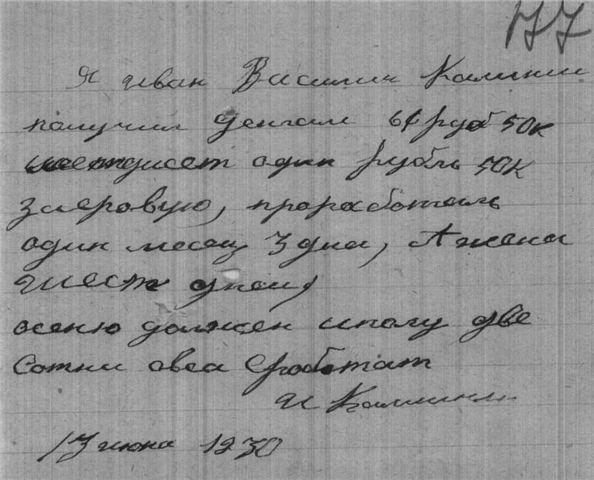 77
Я иван Василии Калинин
получил денгам 61 руб 50к
шестдисет один рубль 50к
заеровую, проработаль
один месец 3 дна, А жена
шест дней,
осеню должен исполу две
Сотни овса Сработат
И Калинин
13 июна 1930